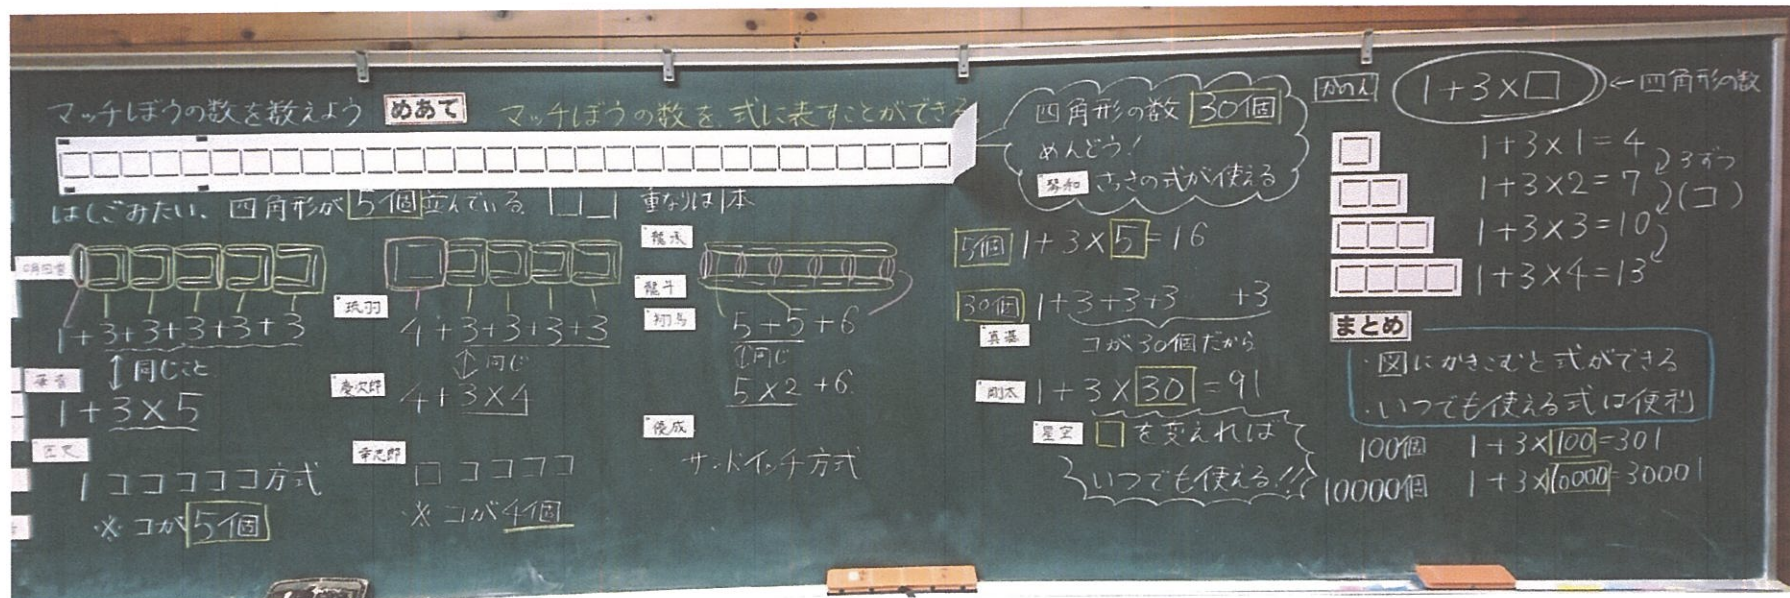 マッチぼうの数を数えよう
めあて
マッチぼうの数を、式に表すことができる
はしごみたい、四角形が5個並んでいる
重なりは1本
1+3+3+3+3+3
↕同じこと
1+3×5
1ココココココ方式
※コが5個
琉羽
4+3+3+3+3
↕同じ
慶次郎
4+3×4
幸志郎
□ココココ
※コが4個
龍斗
5+5+6
↕同じ
5×2+6
優成
サンドイッチ方式
四角形の数30個
めんどう!
琴和
さっきの式が使える
5個 1+3×5=16
30個 1+3+3+3 +3
コが30個だから
剛太
1+3×30=91
星空
□を変えれば
いつでも使える!!
かのん
1+3×□←四角形の数
1+3×1=4
1+3×2=7
1+3×3=10
1+3×4=13
3ずつ
(コ)
まとめ
・図にかきこむと式ができる
・いつでも使える式は便利
100個 1+3×100=301
10000個 1+3×10000=30001